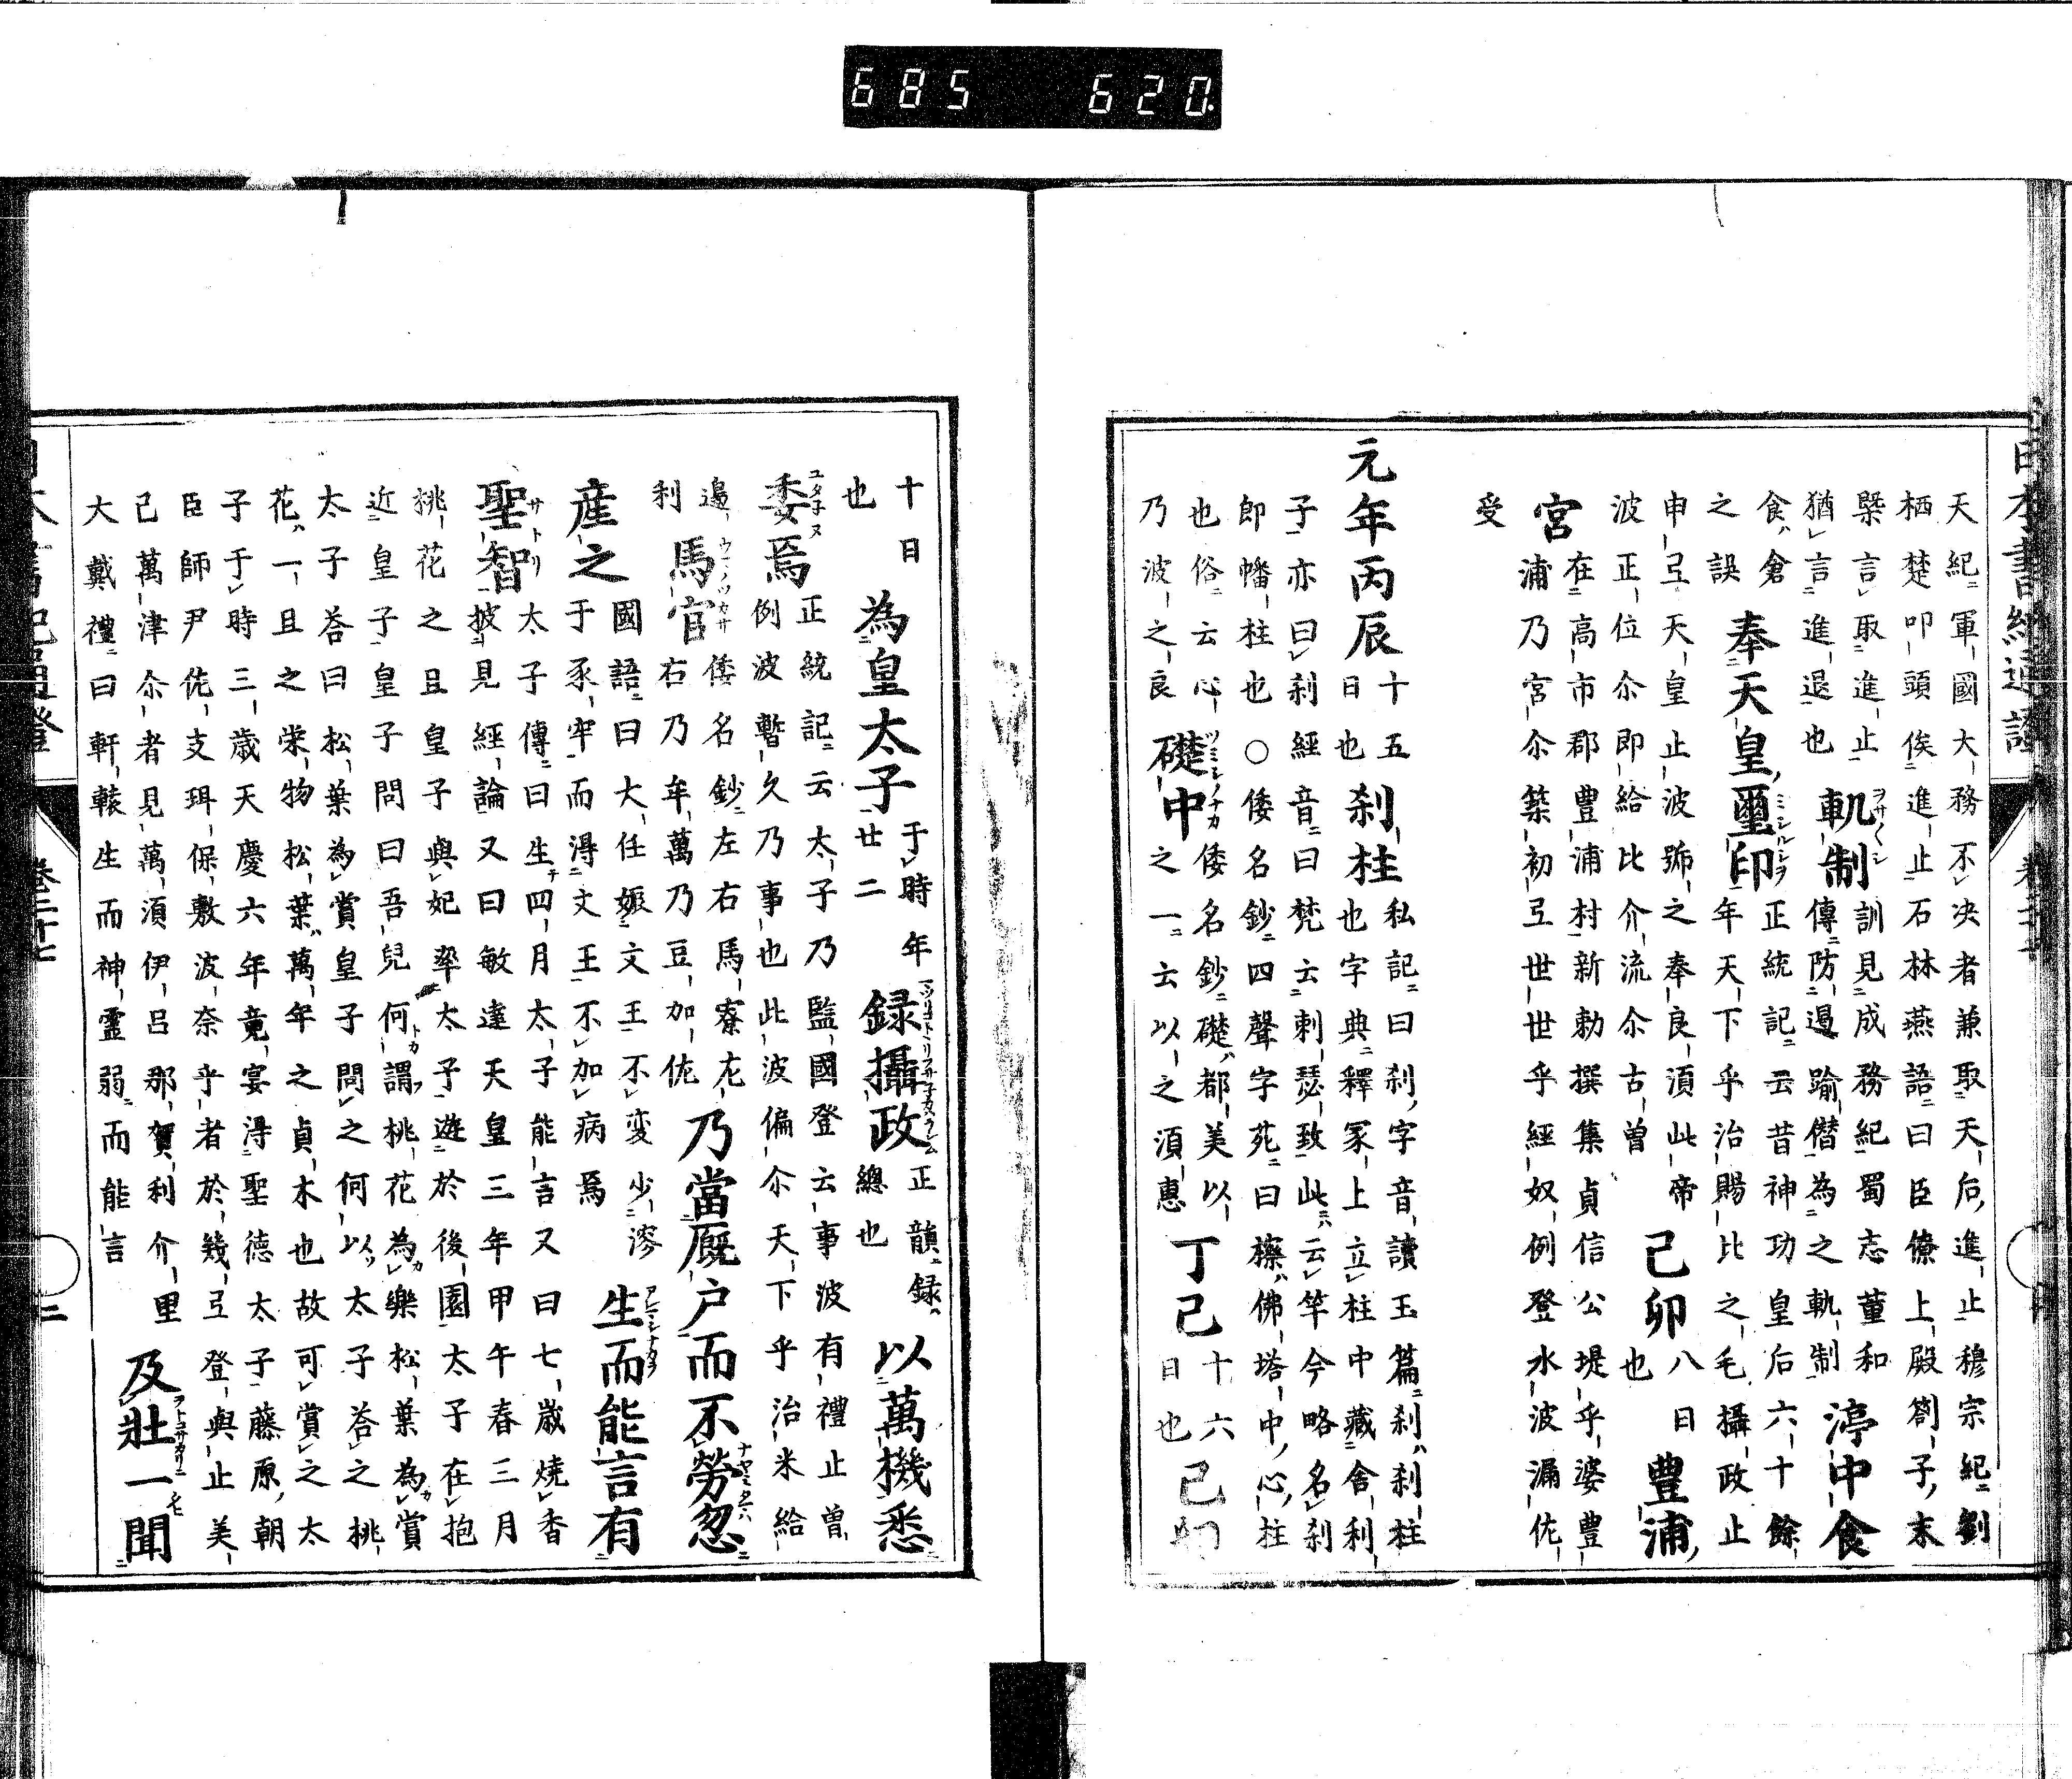 685 620
天紀軍國大務不決者兼取天后進止穆宗紀劉
栖楚叩頭俟進止石林燕語曰臣僚上殿劄子末
槩言取進止
猶言進退也
軌制
ヲサ〱シ
訓見成務紀蜀志董和
傳防遏踰僭為之軌制
渟中食
食倉
之誤
奉天皇璽印
ミシルシヲ
正統記云昔神功皇后六十餘
年天下乎治賜比之毛攝政止
申弖天皇止波號之奉良須此帝
波正位尒即給比介流尒古曽
己卯
八日
也
豊浦
宮
在高市郡豊浦村新勅撰集貞信公堤乎婆豊
浦乃宮尒築初弖世世乎經奴例登水波漏佐
受
元年丙辰
十五
日也
刹柱
私記曰刹字音讀玉篇刹刹柱
也字典釋冢上立柱中藏舍利
子亦曰刹經音曰梵云刺瑟致此云竿今略名刹
即幡柱也〇倭名鈔四聲字苑曰檫佛塔中心柱
也俗云心
乃波之良
礎中
ツミシノナカ
倭名鈔礎都美以
之一云以之須惠
丁己
十六
日也
己
十日
也
為皇太子
于時年
廿二
録攝政
正韻録
總也
以萬機悉
委焉
ユタネヌ
正統記云太子乃監國登云事波有禮止曽
例波暫久乃事也此波偏尒天下乎治米給
邉
利
馬官
ウマノツカサ
倭名鈔左右馬寮左
右乃牟萬乃豆加佐
乃當厩户而不勞忽
産之
國語曰大任娠文王不変少溲
于豕牢而淂文王不加病焉
生而能言有
アレマシナカラ
聖智
サトリ
太子傳曰生四月太子能言又曰七歳燒香
披見經論又曰敏達天皇三年甲午春三月
桃花之旦皇子與妃率太子遊於後園太子在抱
近皇子皇子問曰吾兒何謂桃花為樂松葉為賞
太子荅曰松葉為賞皇子問之何以太子荅之桃
花一旦之栄物松葉萬年之貞木也故可賞之太
子于時三歳天慶六年竟宴淂聖德太子藤原朝
臣師尹佐支珥保敷波奈乎者於幾弖登與止美
己萬津尒者見萬須伊呂那賀利介里
大戴禮曰軒轅生而神靈弱而能言
及壯一聞
ヲトコサカリニ
巻二十七
二